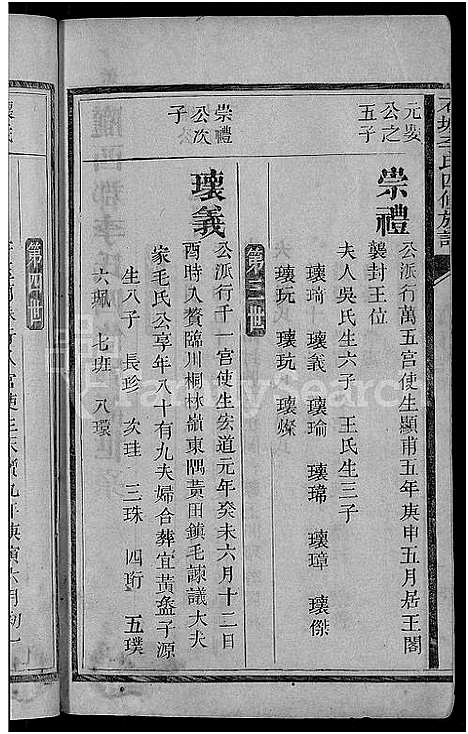 李氏四修族譜
元晏
公之
五子
崇禮
公派行萬五宮使生顯甫五年庚申五月居王閣
襲封王位
夫人吳氏生六子 王氏生三子
瓌琦 瓌義 瓌瑜 瓌㻛 瓌璋 瓌傑
瓌玩 瓌玧 瓌燦
第三世
崇禮
公次
子
瓌義
公派行千一宮使生宏道元年癸未六月十二日
酉時入贅臨川桐林嶺東隅黃田鎮毛諫議大夫
家毛氏公享年八十有九夫婦合葬宜黃盋子源
生八子 長珍 次珪 三珠 四珩 五璞
六珮 七班 八環
第四世
FamilySearch